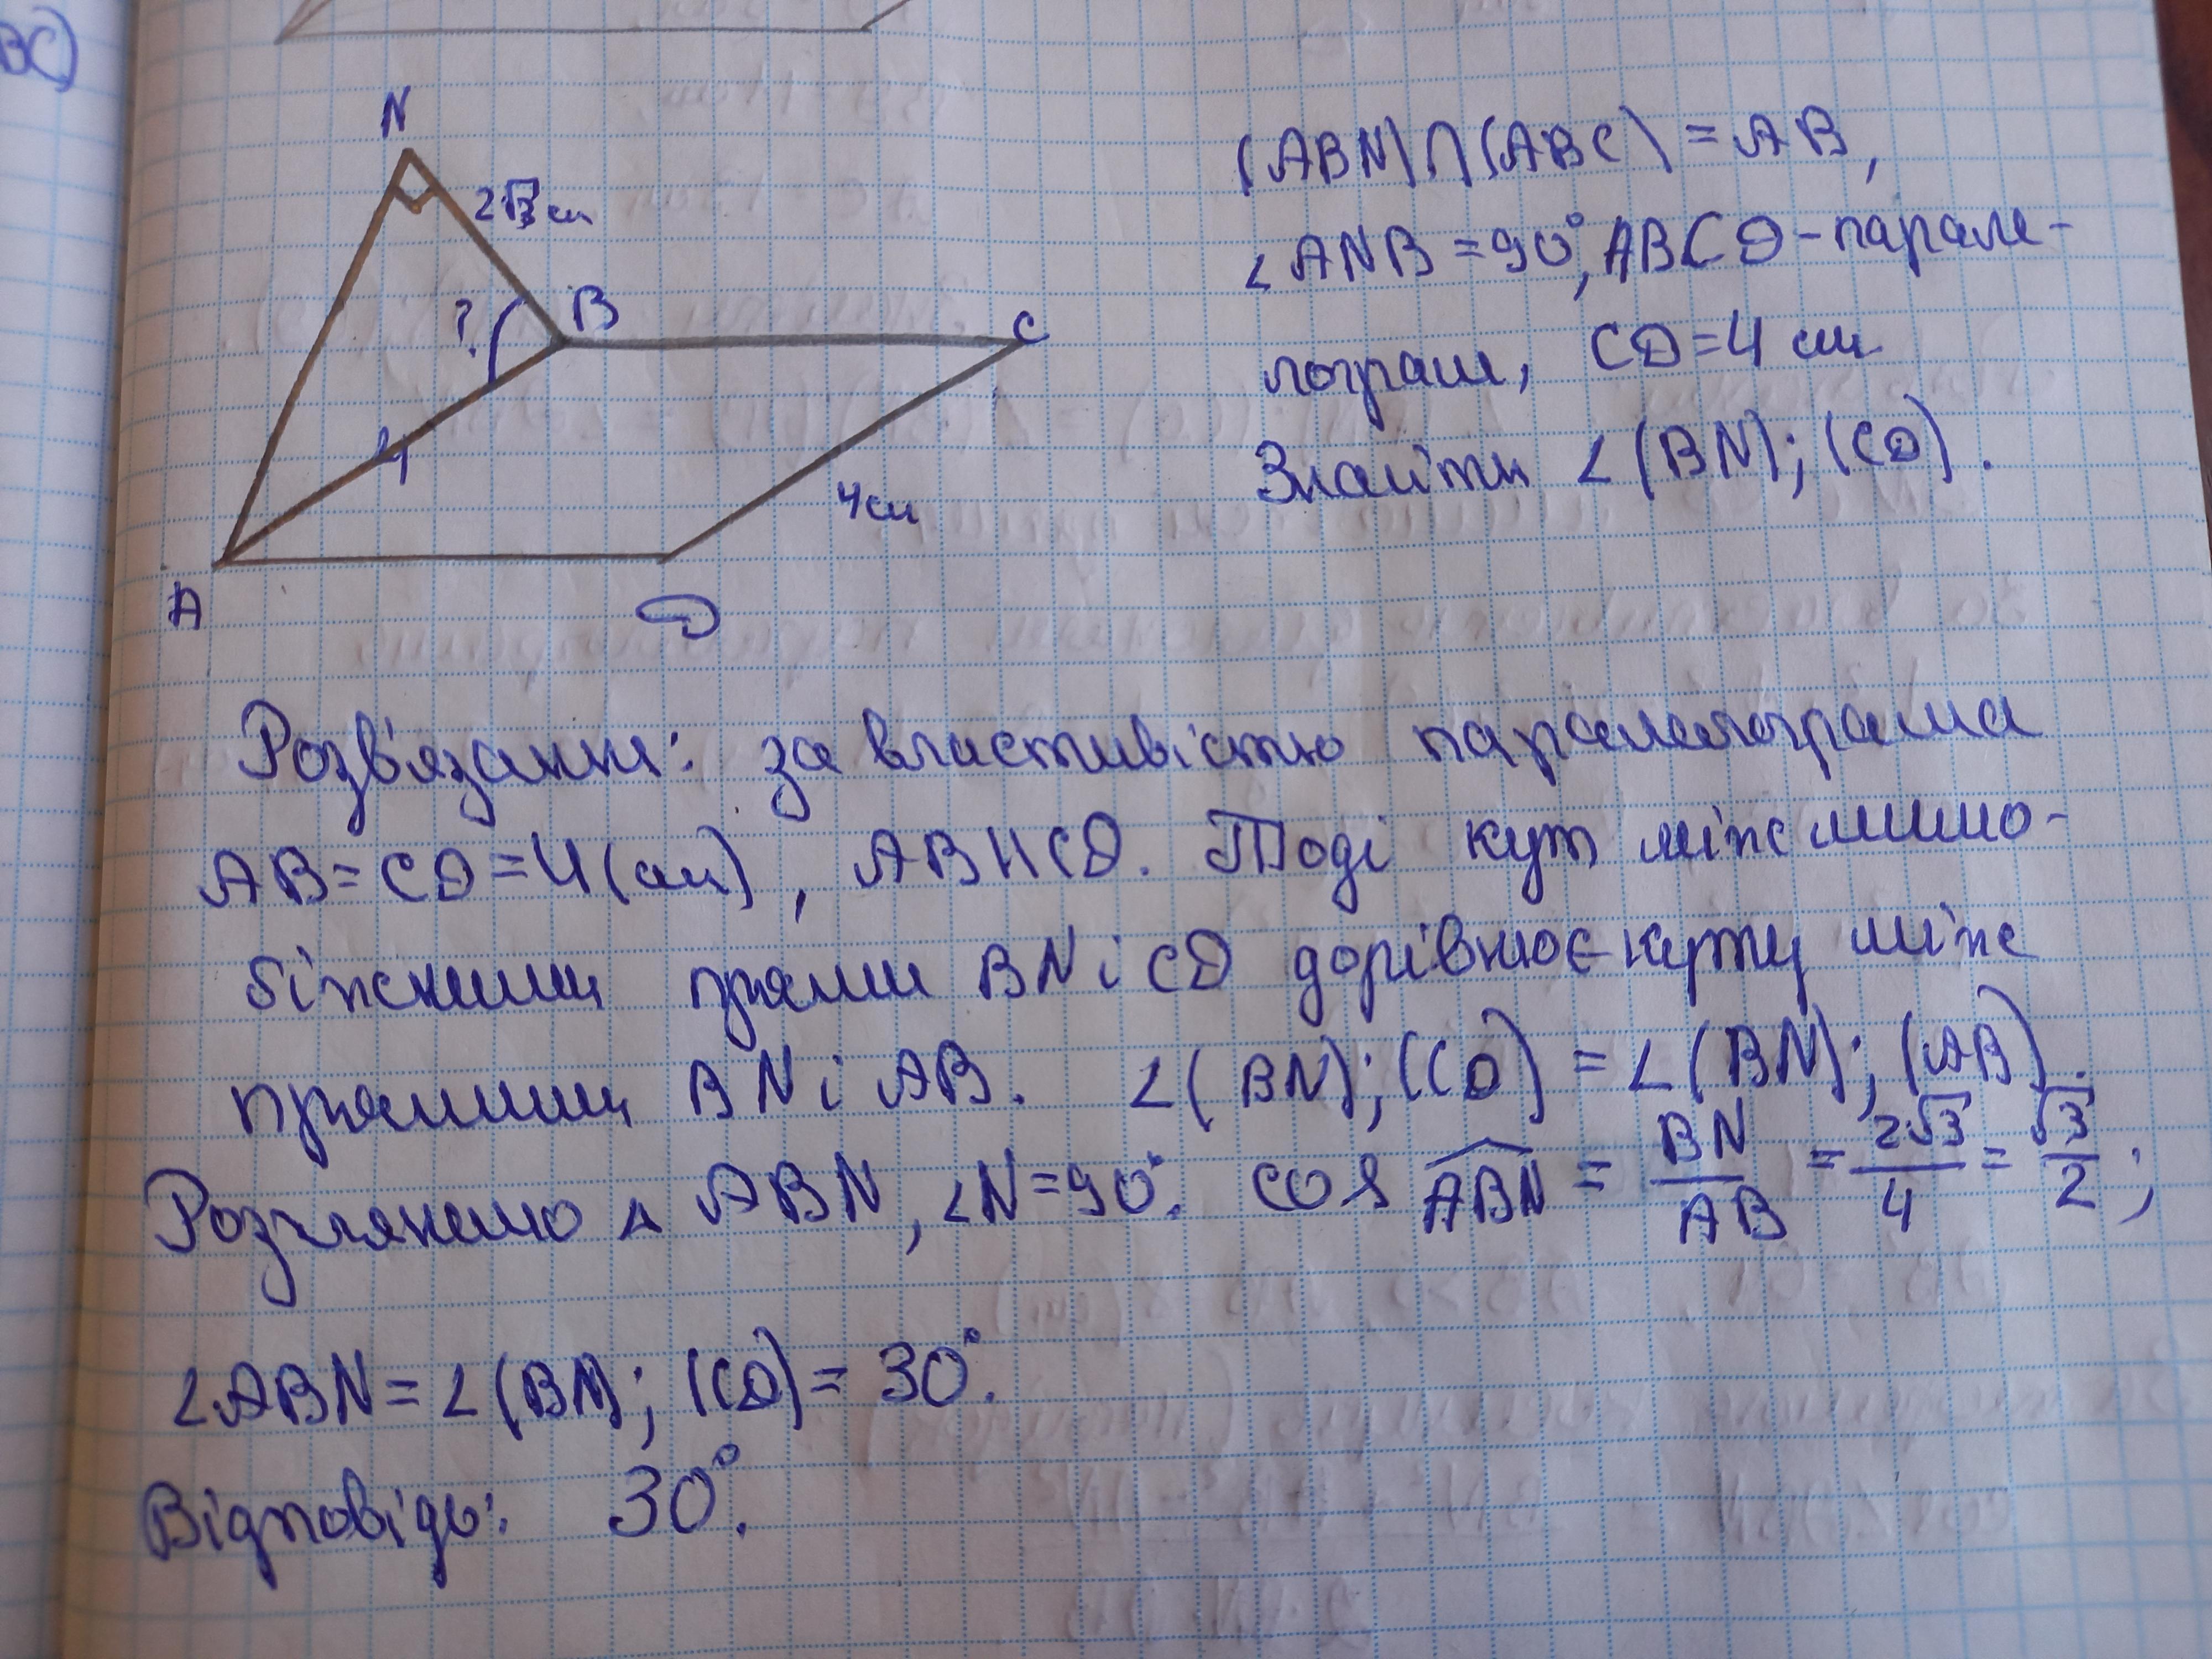 BC)
N
2√3 см
?
B
C
4
4 см
A
D
(ABN)∩(ABC) = AB,
∠ANB = 90°, ABCD - парале-
лограм, CD = 4 см
Знайти ∠(BN); (CD).
Розв'язання: за властивістю паралелограма
AB = CD = 4 (см), AB || CD. Тоді кут між мимо-
біжними прями BN і CD дорівнює куту між
прямими BN і AB. ∠(BN); (CD) = ∠(BN); (AB).
Розглянемо △ ABN, ∠N = 90°. cos ABN = BN/AB = 2√3/4 = √3/2;
∠ABN = ∠(BN); (CD) = 30°.
Відповідь: 30°.